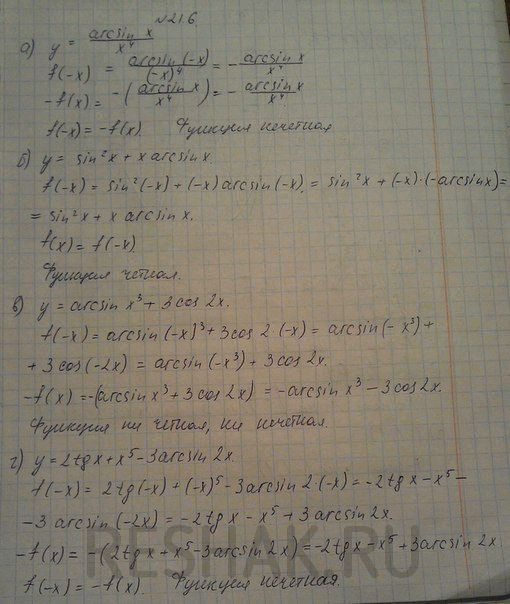 №21.6.
а) y = arcsin x / x⁴
f(-x) = arcsin (-x) / (-x)⁴ = - arcsin x / x⁴
-f(x) = -(arcsin x / x⁴) = - arcsin x / x⁴
f(-x) = -f(x). Функция нечетная
б) y = sin²x + x arcsin x.
f(-x) = sin²(-x) + (-x) arcsin (-x) = sin²x + (-x)·(-arcsin x) =
= sin²x + x arcsin x.
f(x) = f(-x)
Функция четная.
в) y = arcsin x³ + 3 cos 2x.
f(-x) = arcsin (-x)³ + 3 cos 2·(-x) = arcsin (-x³) +
+ 3 cos (-2x) = arcsin (-x³) + 3 cos 2x.
-f(x) = -(arcsin x³ + 3 cos 2x) = -arcsin x³ - 3 cos 2x.
Функция ни четная, ни нечетная.
г) y = 2tg x + x⁵ - 3 arcsin 2x.
f(-x) = 2tg(-x) + (-x)⁵ - 3 arcsin 2·(-x) = -2tg x - x⁵ -
- 3 arcsin (-2x) = -2tg x - x⁵ + 3 arcsin 2x.
-f(x) = -(2tg x + x⁵ - 3 arcsin 2x) = -2tg x - x⁵ + 3 arcsin 2x
f(-x) = -f(x). Функция нечетная.
RESHAK.RU